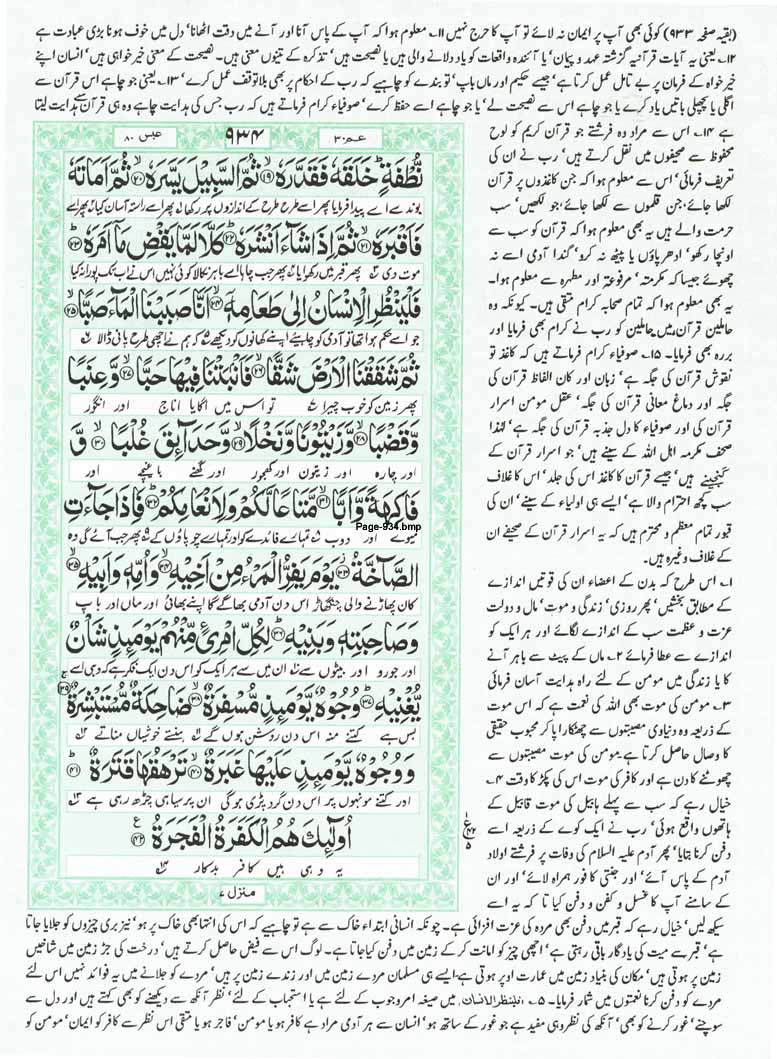 (بقیہ صفحہ ۹۳۳) کوئی بھی آپ پر ایمان نہ لائے تو آپ کا حرج نہیں ۱۱۔ معلوم ہوا کہ آپ کے پاس آنا اور آنے میں دقت اٹھانا' دل میں خوف ہونا بڑی عبادت ہے
۱۲۔ یعنی یہ آیات قرآنیہ گزشتہ عہد و پیمان' یا آئندہ واقعات کو یاد دلانے والی ہیں یا نصیحت ہیں' تذکرہ کے تینوں معنی ہیں۔ نصیحت کے معنی خیر خواہی ہیں' انسان اپنے
خیر خواہ کے فرمان پر بے تامل عمل کرتا ہے' جیسے حکیم اور ماں باپ' تو بندے کو چاہیے کہ رب کے احکام پر بھی بلا توقف عمل کرے' ۱۳۔ یعنی جو چاہے اس قرآن سے
اگلی یا پچھلی باتیں یاد کرے یا جو چاہے اس سے نصیحت لے' یا جو چاہے اسے حفظ کرے' صوفیاء کرام فرماتے ہیں کہ رب جس کی ہدایت چاہے وہ ہی قرآن سے ہدایت لیتا
ہے ۱۴۔ اس سے مراد وہ فرشتے جو قرآن کریم کو لوح
محفوظ سے صحیفوں میں نقل کرتے ہیں' رب نے ان کی
تعریف فرمائی' اس سے معلوم ہوا کہ جن کاغذوں پر قرآن
لکھا جائے' جن قلموں سے لکھا جائے' جو لکھیں' سب
حرمت والے ہیں یہ بھی معلوم ہوا کہ قرآن کو سب سے
اونچا رکھو' ادھر پاؤں یا پیٹھ نہ کرو' گندا آدمی اسے نہ
چھوئے جیسا کہ مکرمتہ' مرفوعتہ اور مطہرہ سے معلوم ہوا۔
یہ بھی معلوم ہوا کہ تمام صحابہ کرام متقی ہیں۔ کیونکہ وہ
حاملین قرآن ہیں حاملین کو رب نے کرام بھی فرمایا اور
بررہ بھی فرمایا۔ ۱۵۔ صوفیاء کرام فرماتے ہیں کہ کاغذ تو
نقوش قرآن کی جگہ ہے' زبان اور کان الفاظ قرآن کی
جگہ اور دماغ معانی قرآن کی جگہ' عقل مومن اسرار
قرآن کی اور صوفیاء کا دل جذبہ قرآن کی جگہ ہے' لہٰذا
صحف مکرمہ اہل اللہ کے سینے ہیں' جو اسرار قرآن کے
گنجینے ہیں' جیسے قرآن کا کاغذ اس کی جلد' اس کا غلاف
سب کچھ احترام والا ہے' ایسے ہی اولیاء کے سینے' ان کی
قبور تمام معظم و محترم ہیں کہ یہ اسرار قرآن کے صحیفے ان
کے غلاف وغیرہ ہیں۔
۱۔ اس طرح کہ بدن کے اعضاء ان کی قوتیں اندازے
کے مطابق بخشیں' پھر روزی' زندگی و موت' مال و دولت
عزت و عظمت سب کے اندازے لگائے اور ہر ایک کو
اندازے سے عطا فرمائے ۲۔ ماں کے پیٹ سے باہر آنے
کا یا زندگی میں مومن کے لئے راہ ہدایت آسان فرمائی
۳۔ مومن کی موت بھی اللہ کی نعمت ہے کہ اس موت
کے ذریعہ وہ دنیاوی مصیبتوں سے چھٹکارا پا کر محبوب حقیقی
کا وصال حاصل کرتا ہے۔ مومن کی موت مصیبتوں سے
چھوٹنے کا دن ہے اور کافر کی موت اس کی پکڑ کا وقت ۴۔
خیال رہے کہ سب سے پہلے ہابیل کی موت قابیل کے
ہاتھوں واقع ہوئی' رب نے ایک کوے کے ذریعہ اسے
دفن کرنا بتایا' پھر آدم علیہ السلام کی وفات پر فرشتے اولاد
آدم کے پاس آئے' اور جنتی کافور ہمراہ لائے' اور ان
کے سامنے آپ کا غسل و کفن و دفن کیا تا کہ یہ اسے
عبس ۸۰
۹۳۴
عم ۳۰
نُّطْفَةٍ خَلَقَهٗ فَقَدَّرَهٗ ۝۱۹ ثُمَّ السَّبِیْلَ یَسَّرَهٗ ۝۲۰ ثُمَّ اَمَاتَهٗ
بوند سے اسے پیدا فرمایا پھر اسے طرح طرح کے اندازوں پر رکھا پھر اسے راستہ آسان کیا پھر اسے
فَاَقْبَرَهٗ ۝۲۱ ثُمَّ اِذَا شَآءَ اَنْشَرَهٗ ۝۲۲ كَلَّا لَمَّا یَقْضِ مَاۤ اَمَرَهٗ ۝۲۳
موت دی پھر قبر میں رکھوایا پھر جب چاہا اسے باہر نکالا کوئی نہیں اس نے اب تک پورا نہ کیا
فَلْیَنْظُرِ الْاِنْسَانُ اِلٰى طَعَامِهٖۤ ۝۲۴ اَنَّا صَبَبْنَا الْمَآءَ صَبًّا ۝۲۵
جو اسے حکم ہوا تھا تو آدمی کو چاہیئے اپنے کھانوں کو دیکھے کہ ہم نے اچھی طرح پانی ڈالا
ثُمَّ شَقَقْنَا الْاَرْضَ شَقًّا ۝۲۶ فَاَنْۢبَتْنَا فِیْهَا حَبًّا ۝۲۷ وَّ عِنَبًا
پھر زمین کو خوب چیرا تو اس میں اگایا اناج اور انگور
وَّ قَضْبًا ۝۲۸ وَّ زَیْتُوْنًا وَّ نَخْلًا ۝۲۹ وَّ حَدَآىِٕقَ غُلْبًا ۝۳۰ وَّ
اور چارہ اور زیتون اور کھجور اور گھنے باغیچے اور
فَاكِهَةً وَّ اَبًّا ۝۳۱ مَّتَاعًا لَّكُمْ وَ لِاَنْعَامِكُمْ ۝۳۲ فَاِذَا جَآءَتِ
Page-934.bmp
میوے اور دوب تمہارے فائدے کو اور تمہارے چوپاؤں کے پھر جب آئے گی وہ
الصَّآخَّةُ ۝۳۳ یَوْمَ یَفِرُّ الْمَرْءُ مِنْ اَخِیْهِ ۝۳۴ وَ اُمِّهٖ وَ اَبِیْهِ ۝۳۵
کان پھاڑنے والی چنگھاڑ اس دن آدمی بھاگے گا اپنے بھائی اور ماں اور باپ
وَ صَاحِبَتِهٖ وَ بَنِیْهِ ۝۳۶ لِكُلِّ امْرِئٍ مِّنْهُمْ یَوْمَىِٕذٍ شَاْنٌ
اور جورو اور بیٹوں سے ان میں سے ہر ایک کو اس دن ایک فکر ہے کہ وہی اسے
یُّغْنِیْهِ ۝۳۷ وُجُوْهٌ یَّوْمَىِٕذٍ مُّسْفِرَةٌ ۝۳۸ ضَاحِكَةٌ مُّسْتَبْشِرَةٌ ۝۳۹
بس ہے کتنے منہ اس دن روشن ہوں گے ہنستے خوشیاں مناتے
وَ وُجُوْهٌ یَّوْمَىِٕذٍ عَلَیْهَا غَبَرَةٌ ۝۴۰ تَرْهَقُهَا قَتَرَةٌ ۝۴۱
اور کتنے مونہوں پر اس دن گرد پڑی ہوگی ان پر سیاہی چڑھ رہی ہے
اُولٰٓىِٕكَ هُمُ الْكَفَرَةُ الْفَجَرَةُ ۝۴۲
یہ وہی ہیں کافر بدکار
منزل ۷
سیکھ لیں' خیال رہے کہ قبر میں دفن بھی مردہ کی عزت افزائی ہے۔ چونکہ انسانی ابتداء خاک سے ہے تو چاہیے کہ اس کی انتہا بھی خاک پر ہو' نیز بری چیزوں کو جلایا جاتا
ہے' قبر سے میت کی یادگار باقی رہتی ہے' اچھی چیز کو امانت کر کے زمین میں دفن کیا جاتا ہے۔ لوگ اس سے فیض حاصل کرتے ہیں' درخت کی جڑ زمین میں شاخیں
زمین پر ہوتی ہیں' مکان کی بنیاد زمین میں عمارت اوپر ہوتی ہے ایسے ہی مسلمان مردے زمین میں اور زندے زمین پر ہیں' مردے کو جلانے میں یہ فوائد نہیں اس لئے
مردے کو دفن کرنا نعمتوں میں شمار فرمایا۔ ۵۔ فلینظر الانسان۔ میں صیغہ امر وجوب کے لئے ہے یا استحباب کے لئے' نظر آنکھ سے دیکھنے کو بھی کہتے ہیں اور دل سے
سوچنے' غور کرنے کو بھی' آنکھ کی نظر وہی مفید ہے جو غور کے ساتھ ہو' انسان سے ہر آدمی مراد ہے کافر ہو یا مومن' فاجر ہو یا متقی اس نظر سے کافر کو ایمان' مومن کو